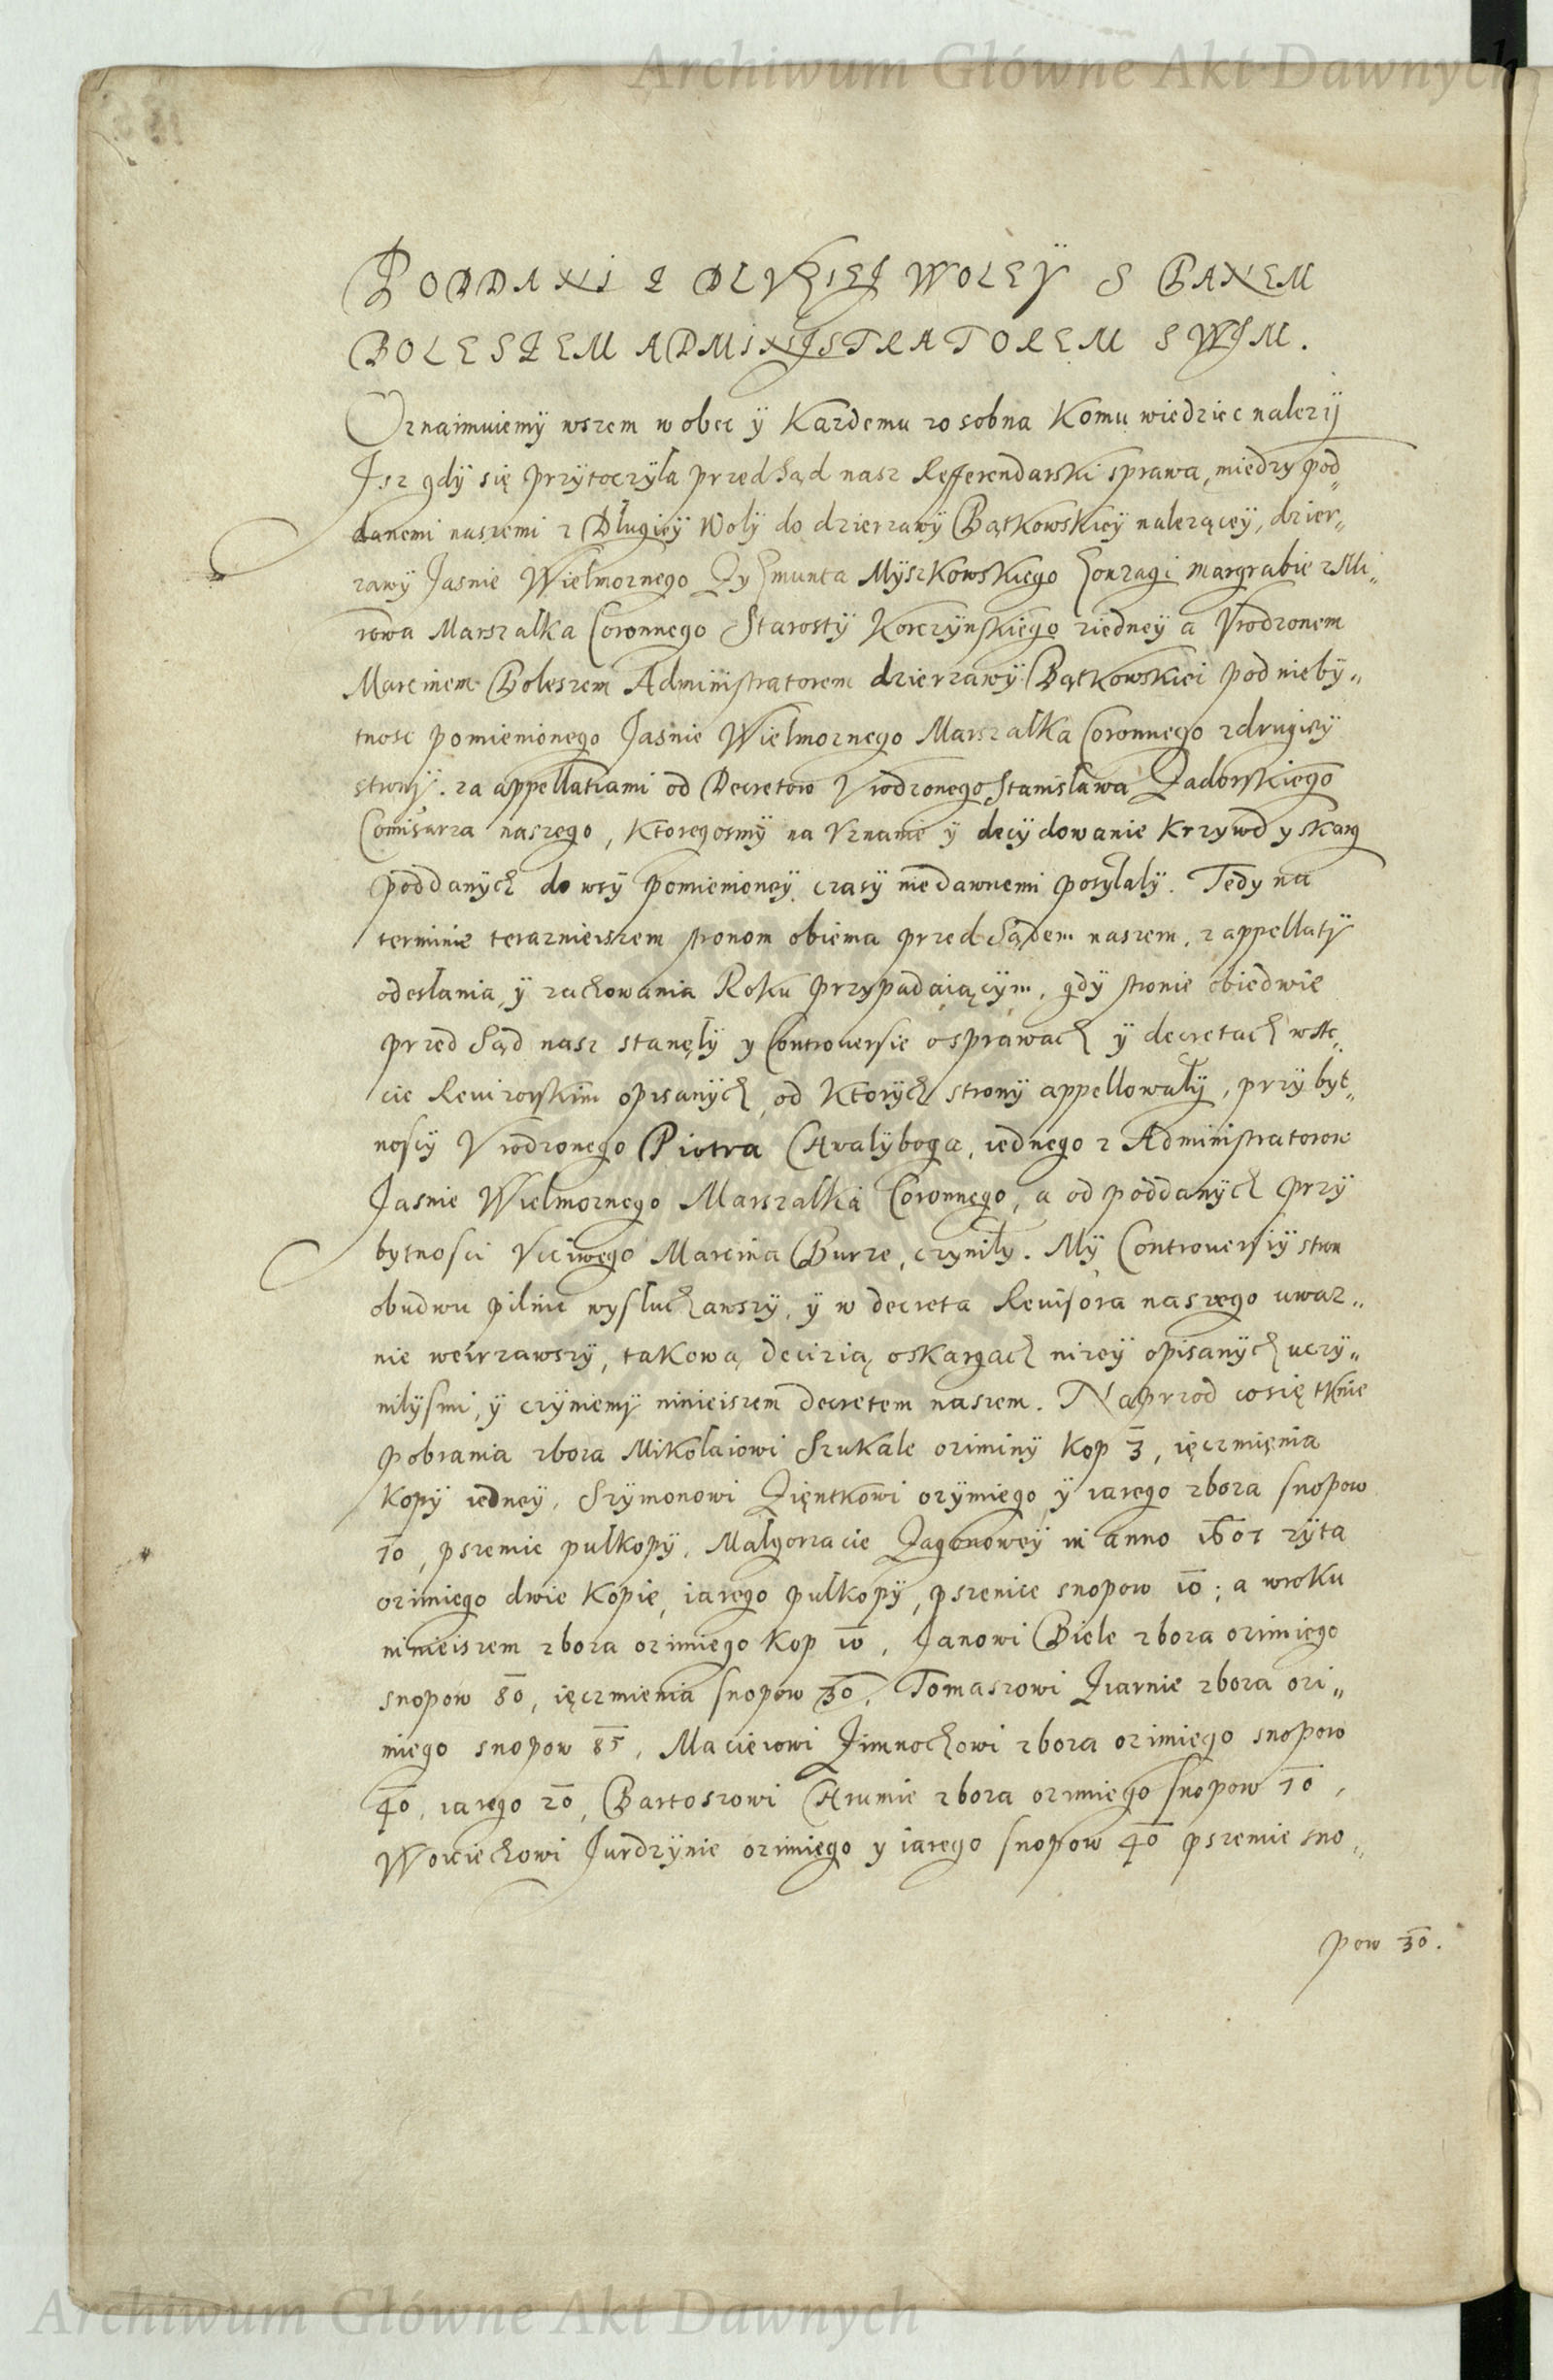 Archiwum Główne Akt Dawnych
PODDANI Z DLVGIEJ WOLEY S PANEM
BOLESZEM ADMINISTRATOREM SWYM.
Oznaimuiemÿ wszem w obec ÿ Kazdemu zosobna Komu wiedziec nalezÿ
Jsz gdÿ się przÿtoczÿla przed Sąd nasz Refferendarski sprawa, miedzy pod„
danemi naszemi z Długieÿ Wolÿ do dzierzawÿ Bątkowskieÿ nalezącey, dzier„
zawÿ Jasnie Wielmoznego Zygmunta Mÿszkowskiego Gonzagi margrabie z Mi„
rowa Marszalka Coronnego Starostÿ Korczÿnskiego ziedneÿ a Vrodzonem
Marcinem Boleszem Administratorem dzierzawÿ Bątkowskiei pod nieby„
tnosc pomienionego Jasnie Wielmoznego Marszalka Coronnego zdrugieÿ
stronÿ. za appellatiami od Decretow Vrodzonego Stanisława Zadorskiego
Comisarza naszego, Ktoregosmÿ na Vznanie ÿ decÿdowanie Krzywd y skarg
poddanÿch do wsÿ pomienioneÿ czasÿ niedawnemi posÿłalÿ. Tedy na
terminie terazniejszem stronom obiema przed Sądem naszem, z appellatÿ
odesłania, ÿ zachowania Roku przÿpadaiącÿm, gdÿ stronie obiedwie
przed Sąd nasz stanęłÿ y Controuersie o sprawach ÿ decretach w Ak„
cie Reuizorskim opisanÿch, od Ktorÿch stronÿ appellowałÿ, przÿ byt„
nosciÿ Vrodzonego Piotra Chwalÿboga, iednego z Administratorow
Jasnie Wielmoznego Marszalka Coronnego, a od poddanÿch przÿ
bÿtnosci Vcciwego Marcina Burze, czÿniłÿ. Mÿ Controuersiÿ stron
obudwu pilnie wysłuchawszÿ, ÿ w decreta Reuisora naszego uwaz„
nie weirzawszÿ, takową decizią o skargach nizeÿ opisanÿch uczÿ„
nilÿsmi, ÿ czÿniemÿ ninieiszem decretem naszem. Naprzod co się tknie
pobrania zboza Mikołaiowi Szukale oziminÿ Kop 3, ięczmięnia
Kopÿ iedneÿ, Szÿmonowi Zięntkowi ozÿmiego ÿ iarego zboza snopow
10, pszenice pulkopÿ. Małgorzacie Zagonoweÿ in anno 1601 zÿta
ozimiego dwie Kopie, iarego pulkopÿ, pszenice snopow 10; a w roku
ninieiszem zboza ozimiego Kop 10, Janowi Biele zboza ozimiego
snopow 80, ięczmienia snopow 30, Tomaszowi Ziarnie zboza ozi„
miego snopow 85, Macieiowi Zimnochowi zboza ozimiego snopow
40, iarego 20, Bartoszowi Chrumie zboza ozimiego snopow 10,
Woiciechowi Jurdzÿnie ozimiego y iarego snopow 40 pszenice sno„
pow 30.
Archiwum Główne Akt Dawnych